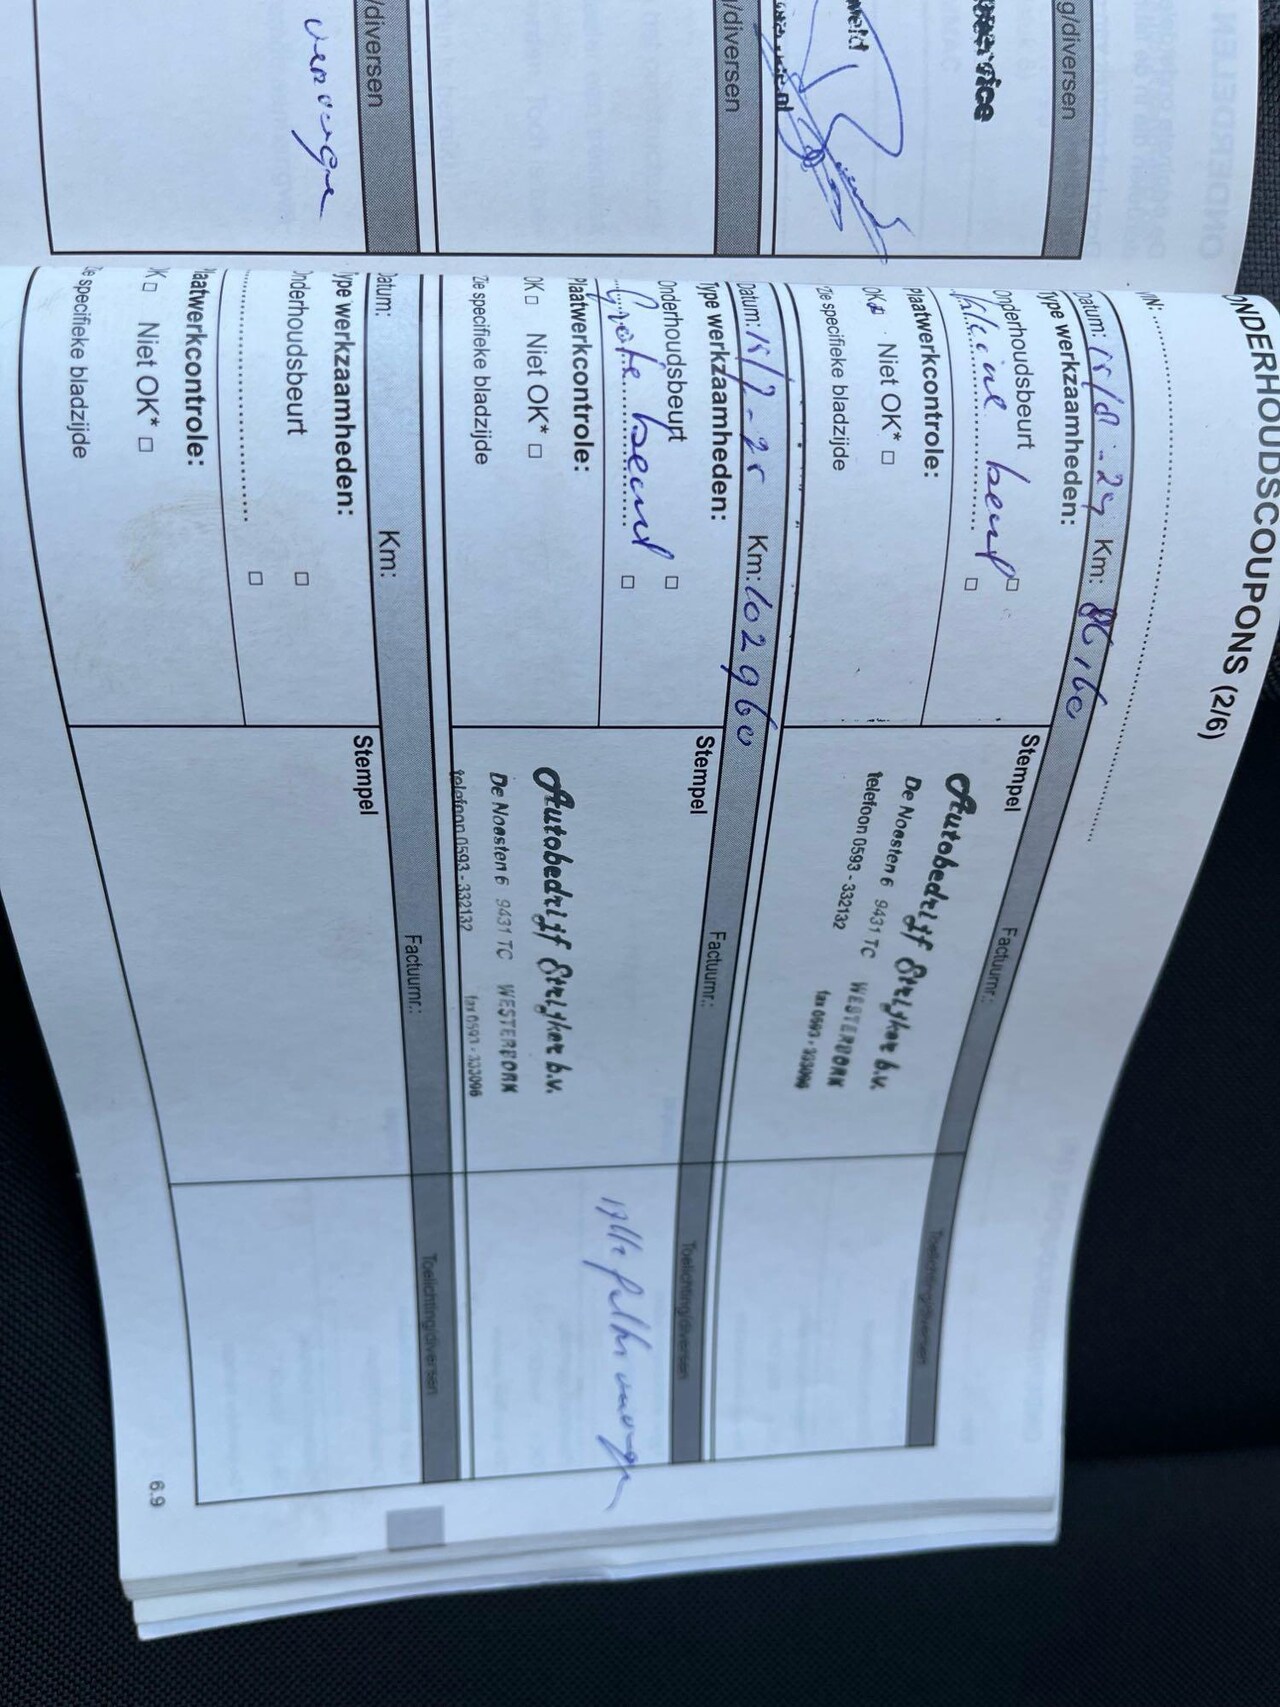 g/diversen
g/diversen
/diversen
vervangen
ONDERHOUDSCOUPONS (2/6)
VIN:
Datum: Km:
Factuurnr.:
Toelichting/diversen
Type werkzaamheden:
Onderhoudsbeurt □
kleine beurt □
Plaatwerkcontrole:
OK Niet OK* □
Zie specifieke bladzijde
Stempel
Autobedrijf Strijker b.v.
De Noesten 6 9431 TC WESTERBORK
telefoon 0593 - 332132 fax 0593 - 333096
Datum: Km: 102960
Factuurnr.:
Toelichting/diversen
Type werkzaamheden:
Onderhoudsbeurt □
Grote beurt □
Plaatwerkcontrole:
OK □ Niet OK* □
Zie specifieke bladzijde
Stempel
Autobedrijf Strijker b.v.
De Noesten 6 9431 TC WESTERBORK
telefoon 0593 - 332132 fax 0593 - 333096
Datum: Km:
Factuurnr.:
Toelichting/diversen
Type werkzaamheden:
Onderhoudsbeurt □
□
Plaatwerkcontrole:
OK □ Niet OK* □
Zie specifieke bladzijde
Stempel
6.9